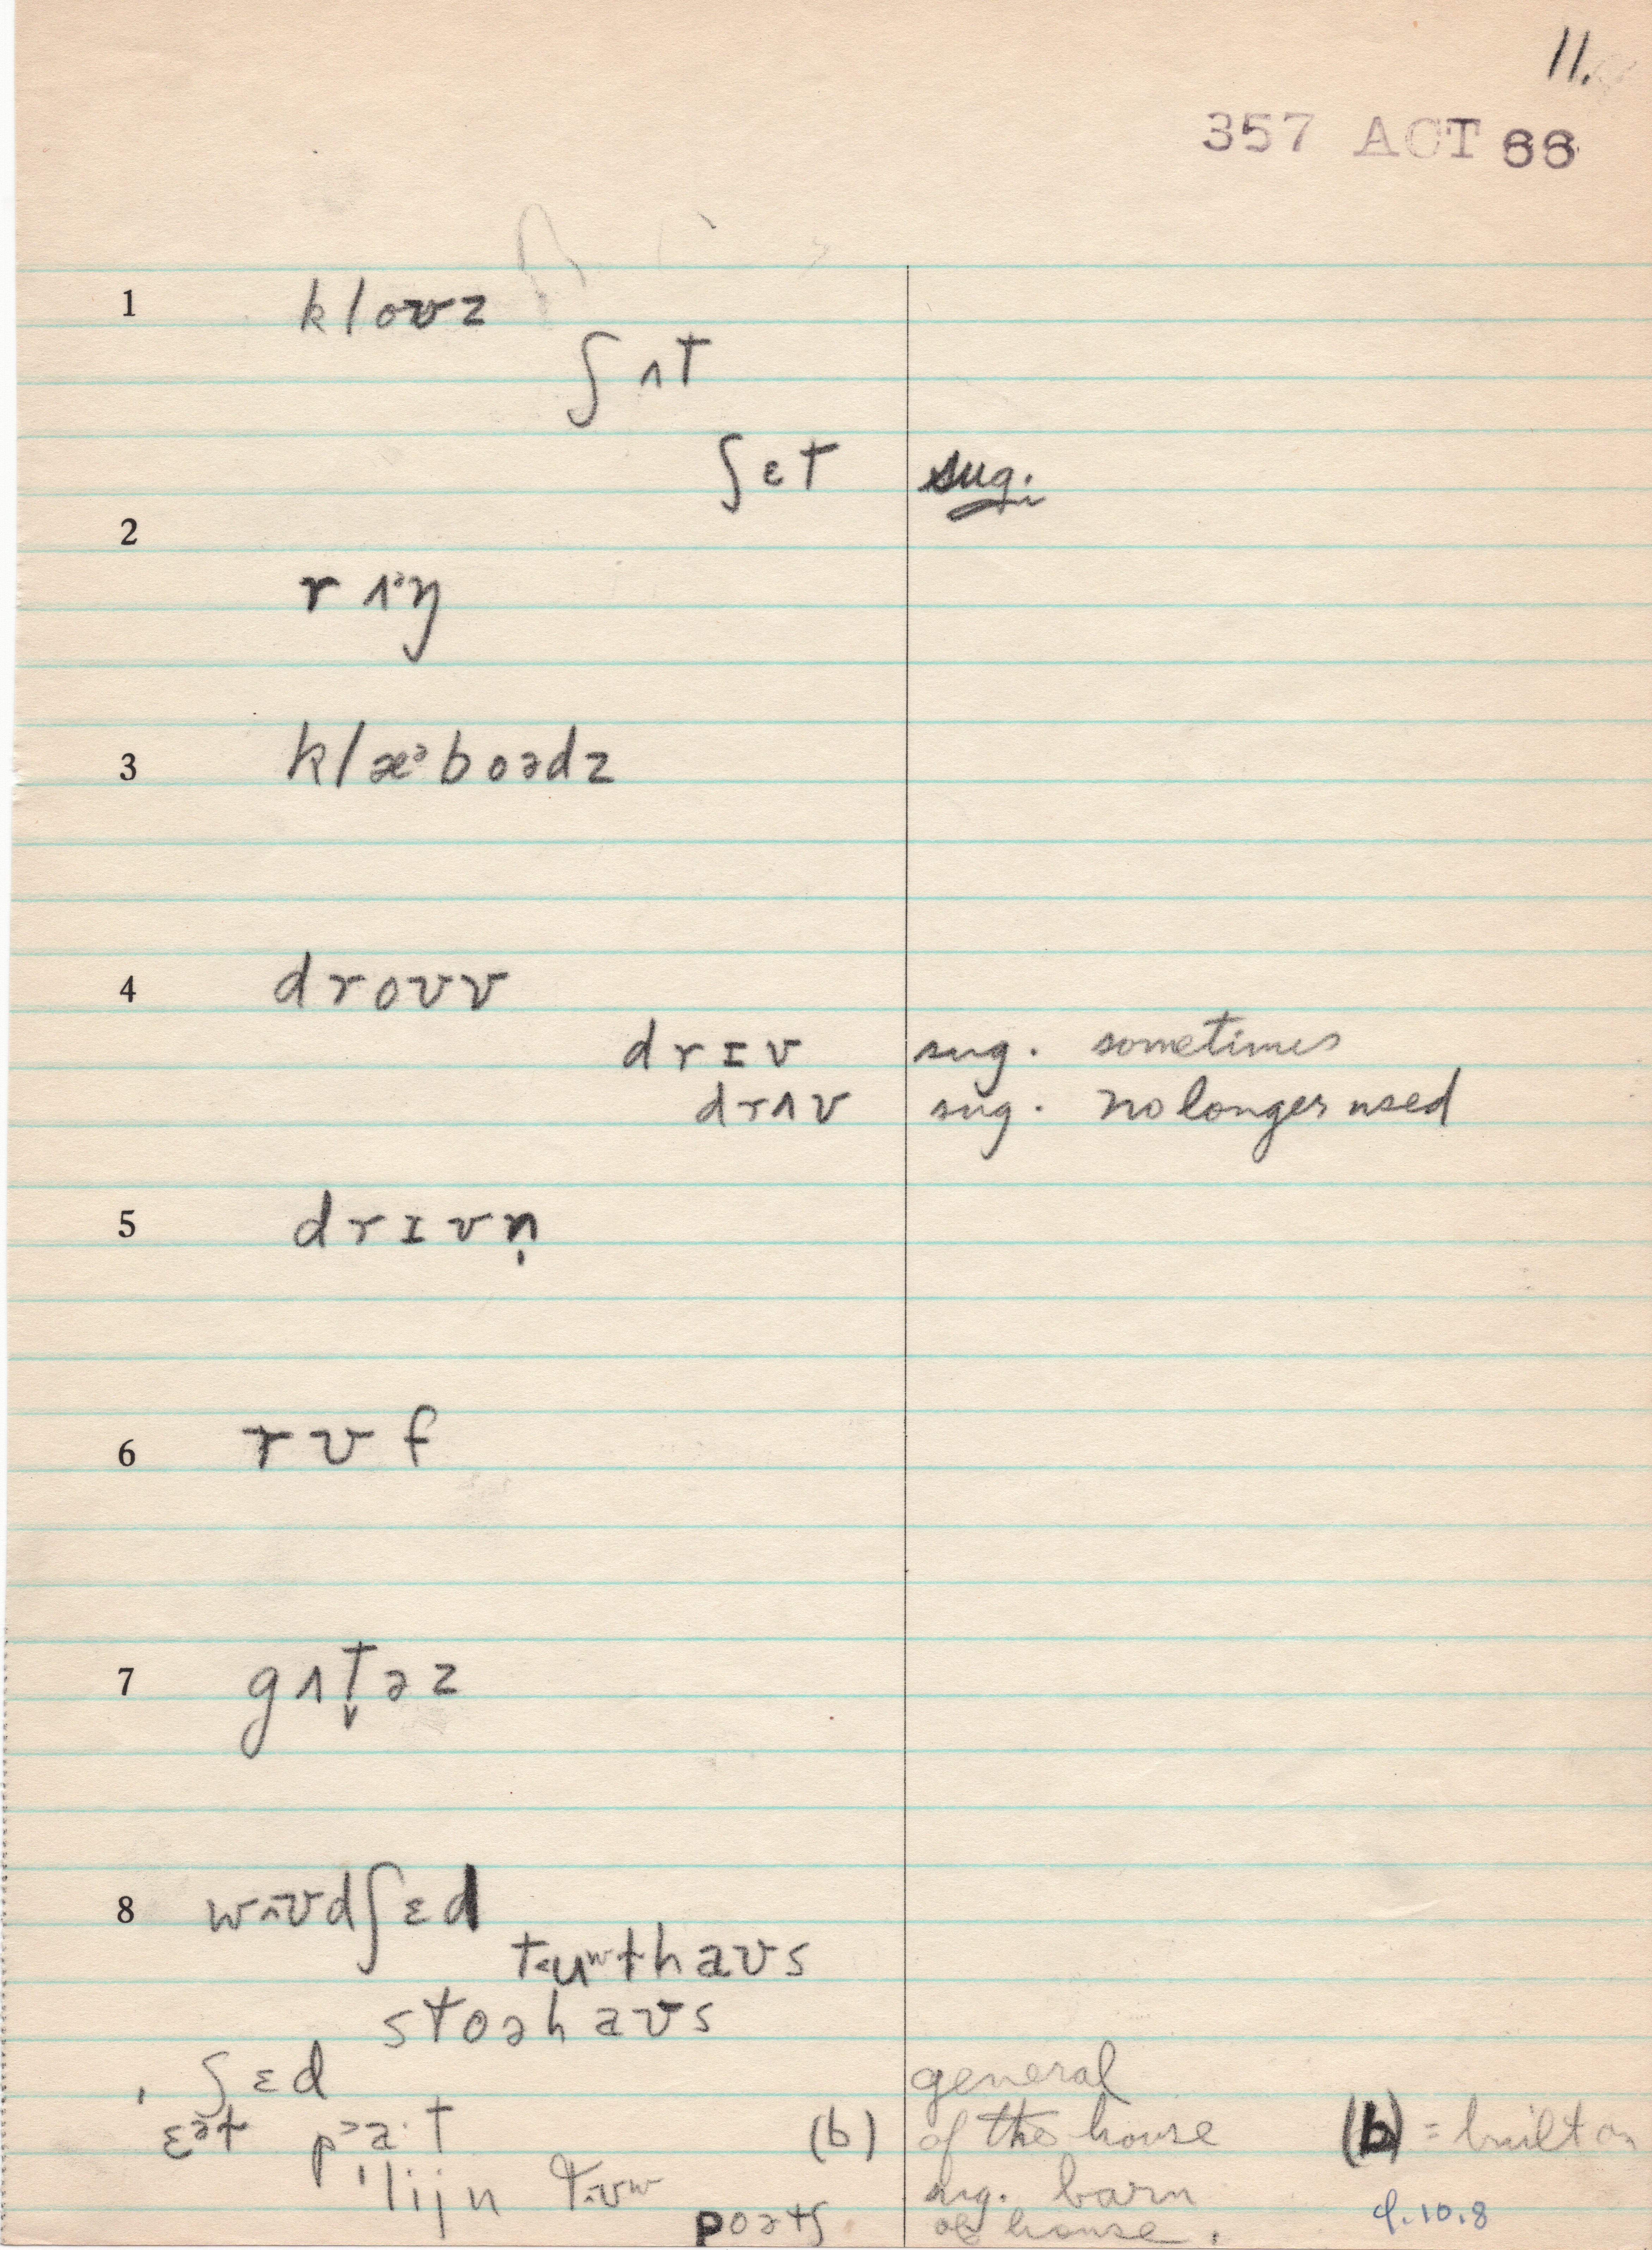 11.
357 ACT 66
1 kloʊz
ʃʌt
ʃɛt sug.
2
rʌᵊŋ
3 klæᵊboədz
4 droʊv
drɪv sug. sometimes
drʌv sug. no longer used
5 drɪvn̩
6 rʊf
7 gʌt̬əz
8 wʊdʃɛd
tuʷlhaʊs
stoəhaʊs
ʃɛd general
ɛᵊt paˑt (b) of the house (b) = built on
ˈlijn tʊʷ sug. barn
poətʃ of house.
9.10.8